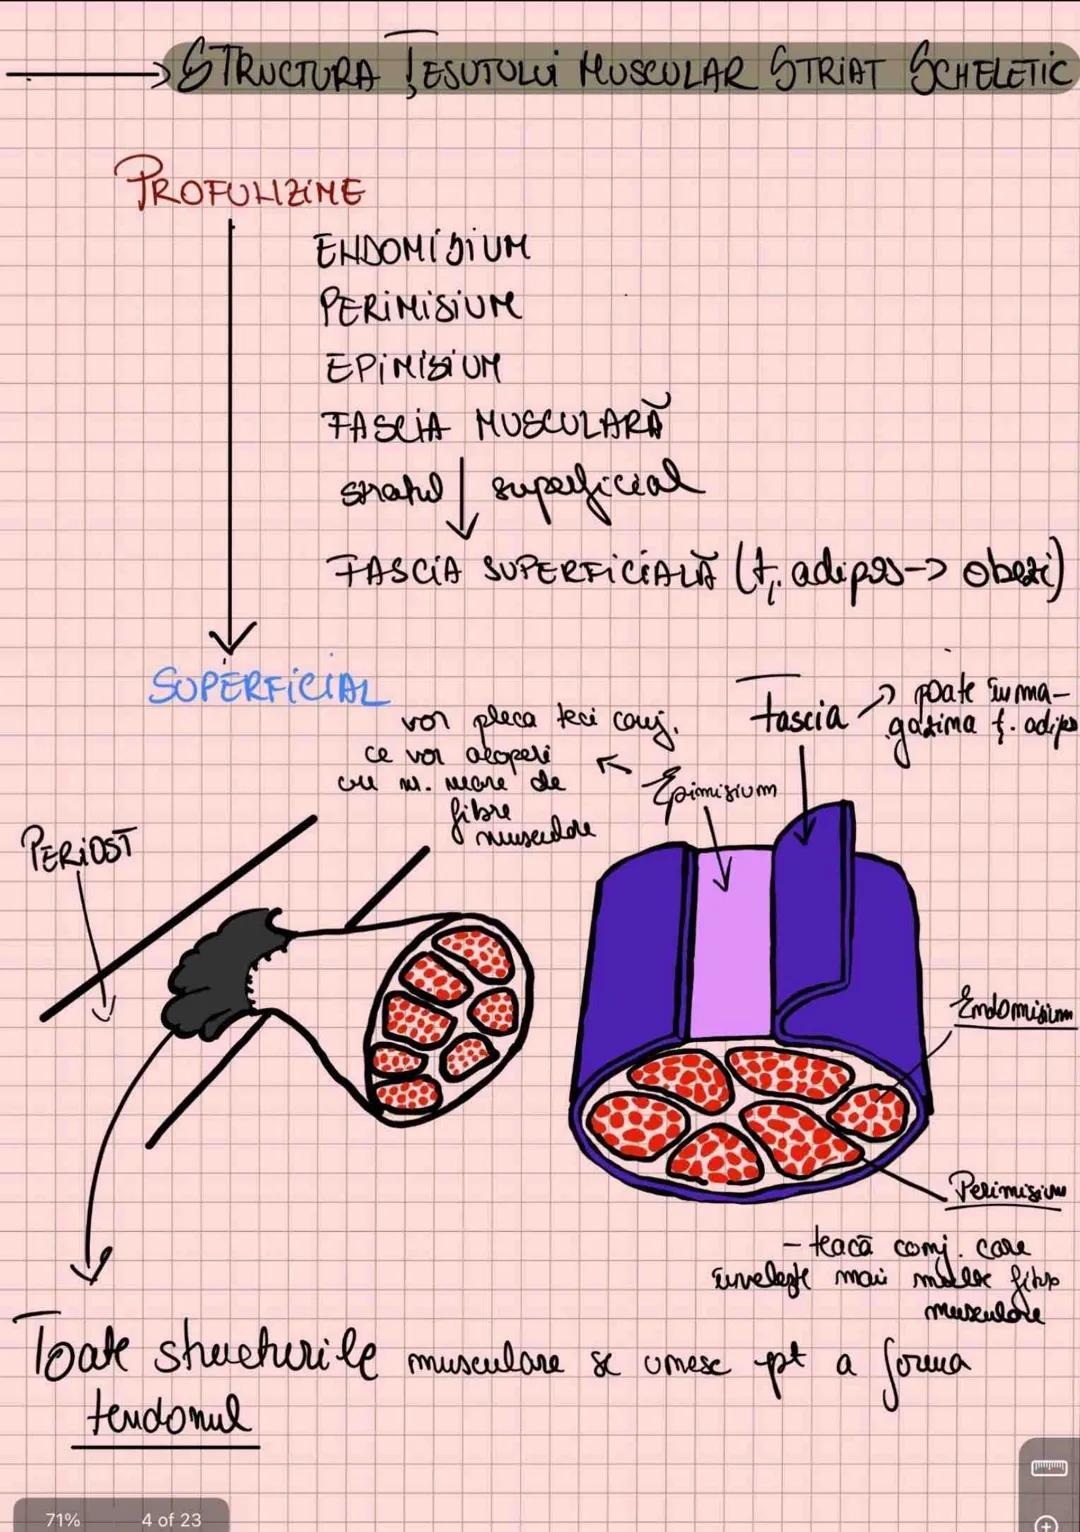 STRUCTURA ȚESUTULUI MUSCULAR STRIAT SCHELETIC
PROFUNZIME
ENDOMISIUM
PERIMISIUM
EPIMISIUM
FASCIA MUSCULARĂ
stratul superficial
FASCIA SUPERFICIALĂ (ț. adipos-> obezi)
SUPERFICIAL
Fascia
poate înma-
gazina ț. adipos
vor pleca teci conj.
ce vor acoperi
un nr. mare de
fibre
musculare
Epimisium
PERIOST
Endomisium
Perimisium
- teacă conj. care
învelește mai multe fibre
musculare
Toate structurile musculare se unesc pt a forma
tendonul
71%
4 of 23